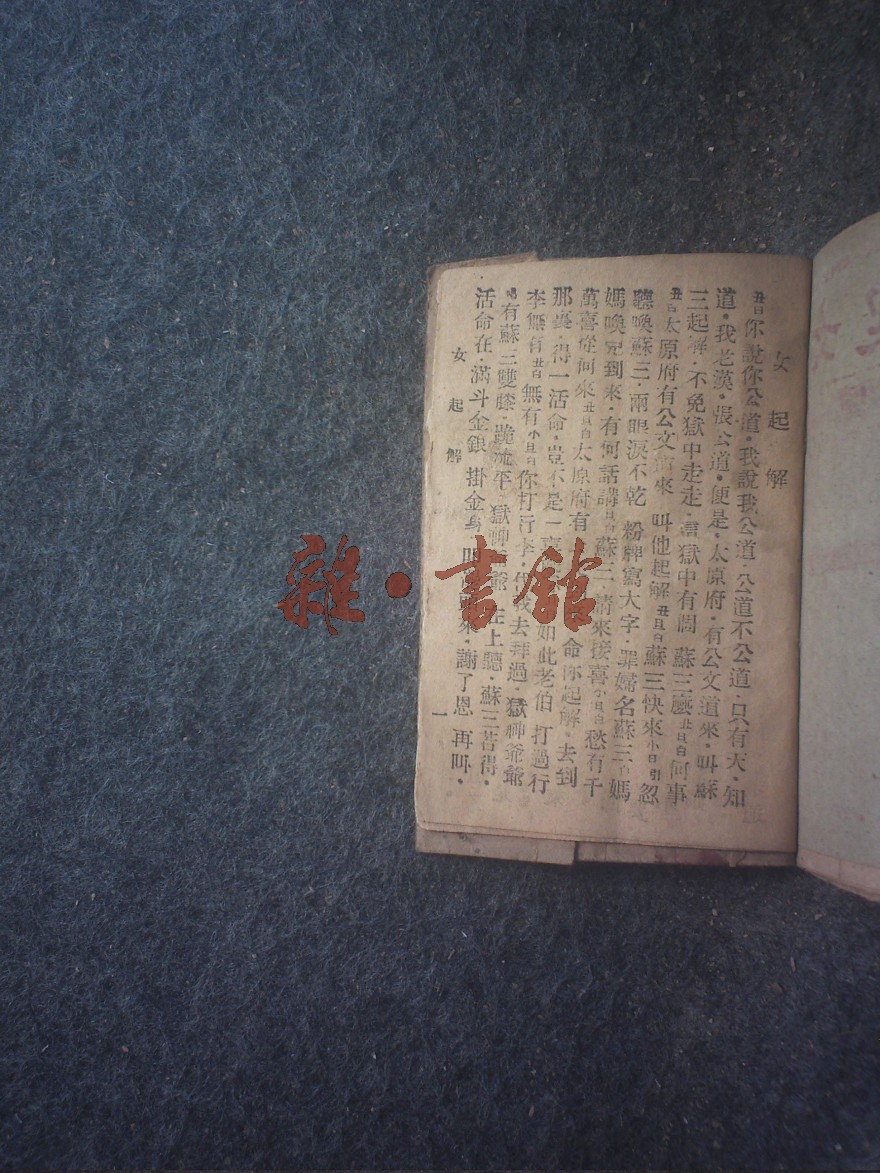 女起解
丑白你說你公道·我說我公道·公道不公道·只有天·知
道·我老漢·張公道·便是·太原府·有公文道來·叫蘇
三起解·不免獄中走走·獄中有閙 蘇三麽丑旦白何事
丑白太原府有公文 來 叫他起解丑旦白蘇三快來小旦唱忽
聽喚蘇三·兩眼淚不乾 粉牌寫大字·罪婦名蘇三白媽
媽喚兒到來·有何話講丑旦白蘇三·請來接喜小旦白愁有千
萬喜從何來丑旦白太原府有 命你起解·去到
那裏·得一活命·豈不是一喜 如此老伯 打過行
李無有丑白無有小旦白你打行李·代我去拜過·獄神爺爺
唱有蘇三雙膝·跪流平·獄神 爺·在上聽·蘇三苦得·
活命在·滿斗金銀 掛金身 叩 來·謝了恩 再叫·
女起解 一
雜·書館